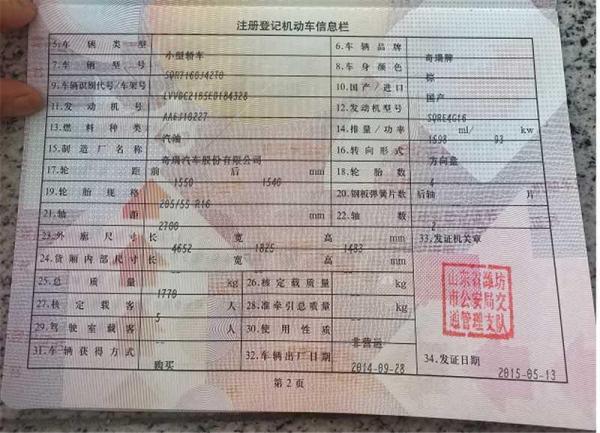 注册登记机动车信息栏
5.车辆类型 小型轿车 6.车辆品牌 奇瑞牌
7.车辆型号 SQR7160J42T0 8.车身颜色 棕
9.车辆识别代号/车架号 LVVDC21B5ED184328 10.国产/进口 国产
11.发动机号 AAEJ10227 12.发动机型号 SQRE4G16
13.燃料种类 汽油 14.排量/功率 1598 ml/ 93 kw
15.制造厂名称 奇瑞汽车股份有限公司 16.转向形式 方向盘
17.轮距 前 1550 后 1540 mm 18.轮胎数 4
19.轮胎规格 205/55 R16 20.钢板弹簧片数 后轴 -- 片
21.轴距 2700 mm 22.轴数 2
23.外廓尺寸 长 4652 宽 1825 高 1483 mm 33.发证机关章
24.货厢内部尺寸 长 -- 宽 -- 高 -- mm
25.总质量 1770 kg 26.核定载质量 -- kg
27.核定载客 5 人 28.准牵引总质量 -- kg
29.驾驶室载客 -- 人 30.使用性质 非营运
31.车辆获得方式 购买 32.车辆出厂日期 2014-09-28 34.发证日期 2015-05-13
山东省潍坊
市公安局交
通管理支队
第2页